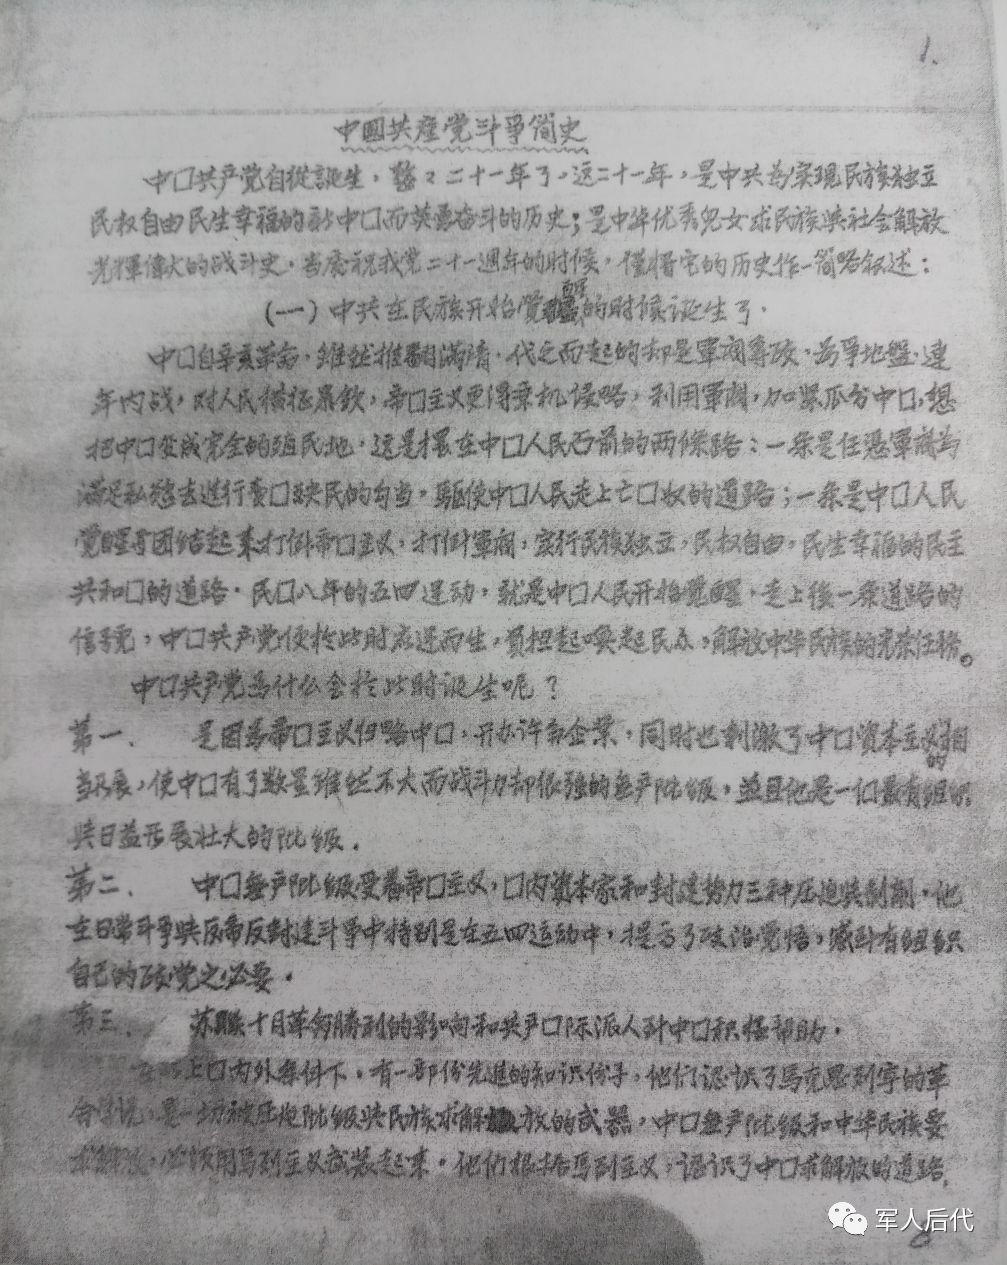 1.
中國共產党斗爭简史
中口共产党自從誕生，整整二十一年了。这二十一年，是中共為实現民族独立
民权自由民生幸福的新中口而英勇奋斗的历史；是中华优秀兒女求民族與社会解放
光輝偉大的战斗史。当庆祝我党二十一週年的时候，僅将它的历史作一简略叙述：
(一)中共在民族开始覺醒的时候誕生了．
中口自辛亥革命，雖然推翻滿清，代之而起的却是軍閥專政，為爭地盤，連
年内战，对人民横征暴歛，帝口主义更得乘机侵略，利用軍閥，加紧瓜分中口，想
把中口变成完全的殖民地，这是摆在中口人民面前的两條路：一条是任憑軍閥為
滿足私慾去進行賣口殃民的勾当，驅使中口人民走上亡口奴的道路；一条是中口人民
覺醒 团结起來打倒帝口主义，打倒軍閥，实行民族独立，民权自由，民生幸福的民主
共和口的道路．民口八年的五四運动，就是中口人民开始覺醒，走上後一条道路的
信号，中口共产党便於此时应運而生，負担起喚起民众，解放中华民族的光荣任務。
中口共产党為什么会於此时诞生呢？
第一． 是因為帝口主义侵略中口，开办许多企業，同时也刺激了中口資本主义的相
当发展，使中口有了数量雖然不大而战斗力却很强的無产阶级，並且他是一个最有组织
與日益发展壮大的阶级．
第二． 中口無产阶级受着帝口主义，口内資本家和封建势力三种压迫與剥削．他
在日常斗爭與反帝反封建斗爭中特别是在五四运动中，提高了政治覺悟，感到有组织
自己的政党之必要．
第三． 苏联十月革命勝利的影响和共产口际派人到中口积極帮助．
在 上口内外条件下，有一部份先進的知识份子，他们認识了馬克思列宁的革
命学说，是一切被压迫阶级與民族求解放的武器，中口無产阶级和中华民族要
求解放，必须用馬列主义武装起來．他们根据馬列主义，認识了中口求解放的道路．
军人后代